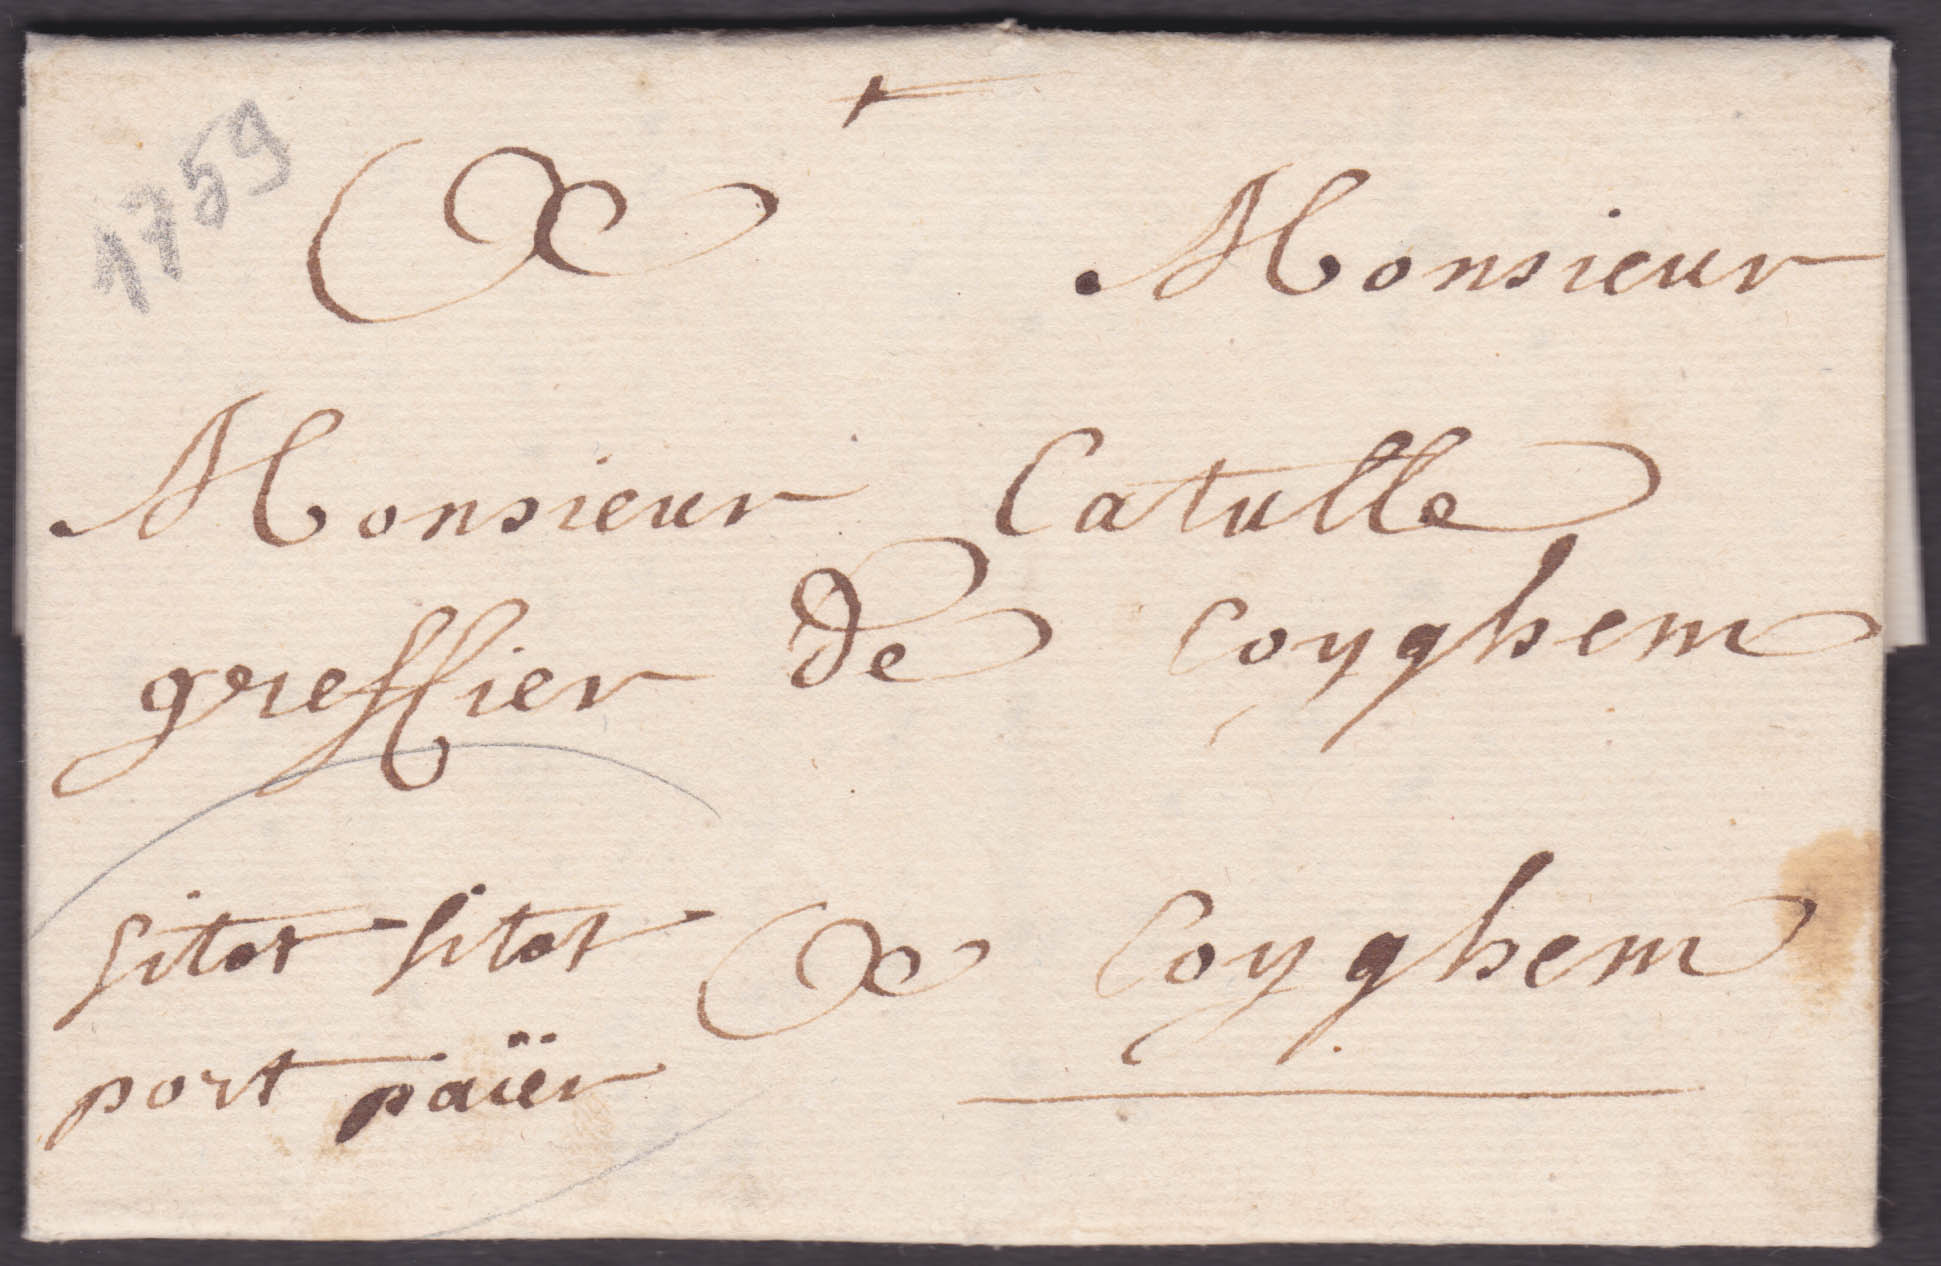 1759
Monsieur
Monsieur Catulle
greffier de Coyghem
sitot sitot Coyghem
port païer